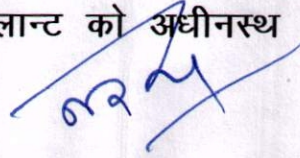 लान्ट को अधीनस्थ